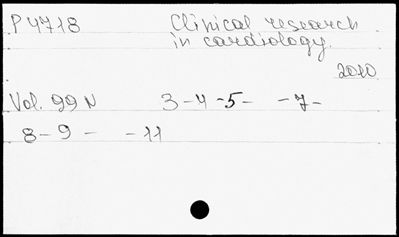 P 4718 Clinical research
in cardiology.
2010
Vol. 99 N 3-4-5- -7-
8-9- -11